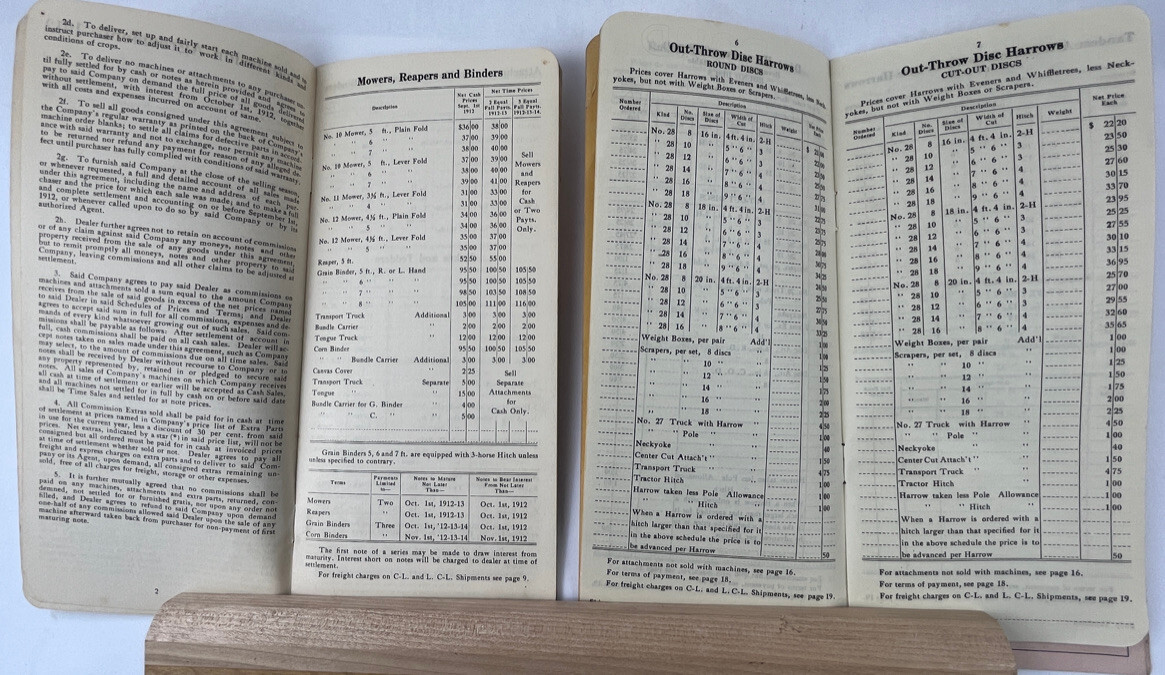 2d. To deliver, set up and fairly start each machine sold and to
instruct purchaser how to adjust it to work in different kinds and
conditions of crops.
2e. To deliver no machines or attachments to any purchaser un-
til fully settled for by cash or notes as herein provided, and to
pay to said Company on demand the full price of all goods delivered
without settlement, with interest from October 1st, 1912, together
with all costs and expenses incurred on account of same.
2f. To sell all goods consigned under this agreement subject to
the Company's regular warranty as printed on the back of Company's
machine order blanks; to settle all claims for defective goods
ance with said warranty and not to exchange, nor permit any machine
to be returned nor refund any payment for reason of any alleged de-
fect until purchaser has fully complied with conditions of said warranty.
2g. To furnish said Company at the close of the selling season,
or whenever requested, a full and detailed account of all sales made
under this agreement, including the name and address of each pur-
chaser and the price for which each sale was made; and to make a full
and complete settlement and accounting on or before September 1st,
1912, or whenever called upon to do so by said Company or by its
authorized Agent.
2h. Dealer further agrees not to retain on account of commissions
or of any claim against said Company any moneys, notes and other
property received from the sale of any goods under this agreement,
but to remit promptly all moneys, notes and other property to said
Company, leaving commissions and all other claims to be adjusted at
settlement.
3. Said Company agrees to pay said Dealer as commissions on
machines and attachments sold a sum equal to the amount Company
receives from the sale of said goods in excess of the net prices named
to said Dealer in said Schedules of Prices and Terms, and Dealer
agrees to accept said sum in full for all commissions, expenses and de-
mands of every kind whatsoever growing out of such sales. Said com-
missions shall be payable as follows: After settlement of account in
full, cash commissions shall be paid on all cash sales. Dealer will ac-
cept notes taken on sales made under this agreement, such as Company
may select, to the amount of commissions due on all time sales. Said
notes shall be received by Dealer without recourse to Company or to
any property represented by, retained in or pledged to secure said
notes. All sales of Company's machines on which Company receives
all cash at time of settlement or earlier will be accepted as Cash Sales,
and all machines not settled for in full by cash on or before said date
shall be Time Sales and settled for at note prices.
4. All Commission Extras sold shall be paid for in cash at time
of settlement at prices named in Company's price list of Extra Parts
in use for the current year, less a discount of 30 per cent. from said
prices. Net extras, indicated by a star (*) in said price list, will not be
consigned but all ordered must be paid for in cash at invoiced prices
at time of settlement whether sold or not. Dealer agrees to pay all
freight and express charges on extra parts and to deliver to said Com-
pany or its Agent, upon demand, all consigned extras remaining un-
sold, free of all charges for freight, storage or other expenses.
5. It is further mutually agreed that no commissions shall be
paid on any machines, attachments and extra parts, returned, con-
demned, not settled for or furnished gratis, nor upon any order not
filled, and Dealer agrees to refund to said Company upon demand
one-half of any commissions allowed said Dealer upon the sale of any
machine afterward taken back from purchaser for non-payment of first
maturing note.
2
Mowers, Reapers and Binders
Description
Net Cash Prices Sept. 1st 1912
Net Time Prices
2 Equal Fall Paym'ts. 1912-13
3 Equal Fall Paym'ts. 1912-13-14.
No. 10 Mower, 5 ft., Plain Fold $36 00 38 00
" " 6 " " 37 00 39 00
" " 7 " " 38 00 40 00
No. 10 Mower, 5 ft., Lever Fold 37 00 39 00
" " 6 " " 38 00 40 00
" " 7 " " 39 00 41 00
No. 11 Mower, 3½ ft., Lever Fold 31 00 33 00
" " 4 " " 31 00 33 00
No. 12 Mower, 4½ ft., Plain Fold 34 00 36 00
" " 5 " " 34 00 36 00
No. 12 Mower, 4½ ft., Lever Fold 35 00 37 00
" " 5 " " 35 00 37 00
Sell
Mowers
and
Reapers
for
Cash
or Two
Paym'ts.
Only.
Reaper, 5 ft. 52 50 55 00
Grain Binder, 5 ft., R. or L. Hand 95 50 100 50 105 50
" " 6 " " 95 50 100 50 105 50
" " 7 " " 98 50 103 50 108 50
" " 8 " " 105 00 111 00 116 00
Transport Truck Additional 3 00 3 00 3 00
Bundle Carrier " 2 00 2 00 2 00
Tongue Truck " 12 00 12 00 12 00
Corn Binder 95 50 100 50 105 50
" " Bundle Carrier Additional 3 00 3 00 3 00
Canvas Cover 2 25
Transport Truck Separate 5 00
Tongue " " 15 00
Bundle Carrier for G. Binder " 4 00
" " " C. " " 5 00
Sell
Separate
Attachments
for
Cash Only.
Grain Binders 5, 6 and 7 ft. are equipped with 3-horse Hitch unless
unless specified to contrary.
Terms
Payments Limited to—
Notes to Mature Not Later Than—
Notes to Bear Interest From Not Later Than—
Mowers Two Oct. 1st, 1912-13 Oct. 1st, 1912
Reapers " Oct. 1st, 1912-13 Oct. 1st, 1912
Grain Binders Three Oct. 1st, '12-13-14 Oct. 1st, 1912
Corn Binders " Nov. 1st, '12-13-14 Nov. 1st, 1912
The first note of a series may be made to draw interest from
maturity. Interest short on notes will be charged to dealer at time of
settlement.
For freight charges on C-L. and L. C-L. Shipments see page 9.
6
Out-Throw Disc Harrows
ROUND DISCS
Prices cover Harrows with Eveners and Whiffletrees, less Neck-
yokes, but not with Weight Boxes or Scrapers.
Number Ordered
Description
Kind
No. Discs
Size of Discs
Width of Cut
Hitch
Weight
No. 28 8 16 in. 4 ft. 4 in. 2-H
" 28 10 5 " 6 " 3
" 28 12 6 " 6 " 3
" 28 14 7 " 6 " 4
" 28 16 8 " 6 " 4
" 28 18 9 " 6 " 4
No. 28 8 18 in. 4 ft. 4 in. 2-H
" 28 10 5 " 6 " 3
" 28 12 6 " 6 " 3
" 28 14 7 " 6 " 4
" 28 16 8 " 6 " 4
" 28 18 9 " 6 " 4
No. 28 8 20 in. 4 ft. 4 in. 2-H
" 28 10 5 " 6 " 3
" 28 12 6 " 6 " 3
" 28 14 7 " 6 " 4
" 28 16 8 " 6 " 4
Weight Boxes, per pair Add'l 1 00
Scrapers, per set, 8 discs " 1 00
" " 10 " " 1 25
" " 12 " " 1 50
" " 14 " " 1 75
" " 16 " " 2 00
" " 18 " " 2 25
No. 27 Truck with Harrow " 4 50
" " Pole " " 1 00
Neckyoke " 40
Center Cut Attach't " 1 50
Transport Truck " 4 75
Tractor Hitch " 1 00
Harrow taken less Pole Allowance 1 00
" " Hitch " 1 00
When a Harrow is ordered with a
hitch larger than that specified for it
in the above schedule the price is to
be advanced per Harrow 50
For attachments not sold with machines, see page 16.
For terms of payment, see page 18.
For freight charges on C-L. and L. C-L. Shipments, see page 19.
7
Out-Throw Disc Harrows
CUT-OUT DISCS
Prices cover Harrows with Eveners and Whiffletrees, less Neck-
yokes, but not with Weight Boxes or Scrapers.
Number Ordered
Description
Kind
No. Discs
Size of Discs
Width of Cut
Hitch
Weight
Net Price Each
No. 28 8 16 in. 4 ft. 4 in. 2-H $ 22 20
" 28 10 5 " 6 " 3 23 50
" 28 12 6 " 6 " 3 25 30
" 28 14 7 " 6 " 4 27 60
" 28 16 8 " 6 " 4 30 15
" 28 18 9 " 6 " 4 33 70
No. 28 8 18 in. 4 ft. 4 in. 2-H 23 95
" 28 10 5 " 6 " 3 25 25
" 28 12 6 " 6 " 3 27 55
" 28 14 7 " 6 " 4 30 10
" 28 16 8 " 6 " 4 33 15
" 28 18 9 " 6 " 4 36 95
No. 28 8 20 in. 4 ft. 4 in. 2-H 25 70
" 28 10 5 " 6 " 3 27 00
" 28 12 6 " 6 " 3 29 55
" 28 14 7 " 6 " 4 32 60
" 28 16 8 " 6 " 4 35 65
Weight Boxes, per pair Add'l 1 00
Scrapers, per set, 8 discs " 1 00
" " 10 " " 1 25
" " 12 " " 1 50
" " 14 " " 1 75
" " 16 " " 2 00
" " 18 " " 2 25
No. 27 Truck with Harrow " 4 50
" " Pole " " 1 00
Neckyoke " 40
Center Cut Attach't " 1 50
Transport Truck " 4 75
Tractor Hitch " 1 00
Harrow taken less Pole Allowance 1 00
" " Hitch " 1 00
When a Harrow is ordered with a
hitch larger than that specified for it
in the above schedule the price is to
be advanced per Harrow 50
For attachments not sold with machines, see page 16.
For terms of payment, see page 18.
For freight charges on C-L. and L. C-L. Shipments, see page 19.